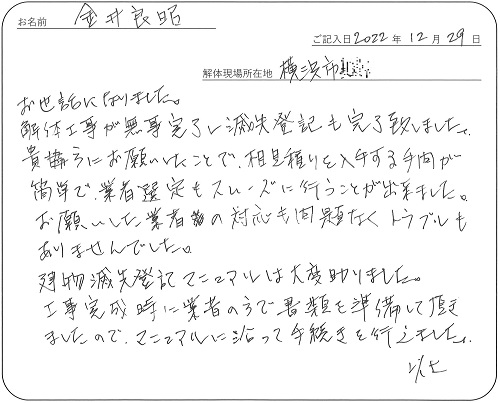 お名前 金井良昭
ご記入日 2022 年 12 月 29 日
解体現場所在地 横浜市
お世話になりました。
解体工事が無事完了し滅失登記も完了致しました。
貴協会にお願いしたことで、相見積りを入手する手間が
簡単で、業者選定もスムーズに行うことが出来ました。
お願いした業者の対応も問題なくトラブルも
ありませんでした。
建物滅失登記マニュアルは大変助りました。
工事完成時に業者の方で書類を準備して頂き
ましたので、マニュアルに沿って手続きを行えました。
以上